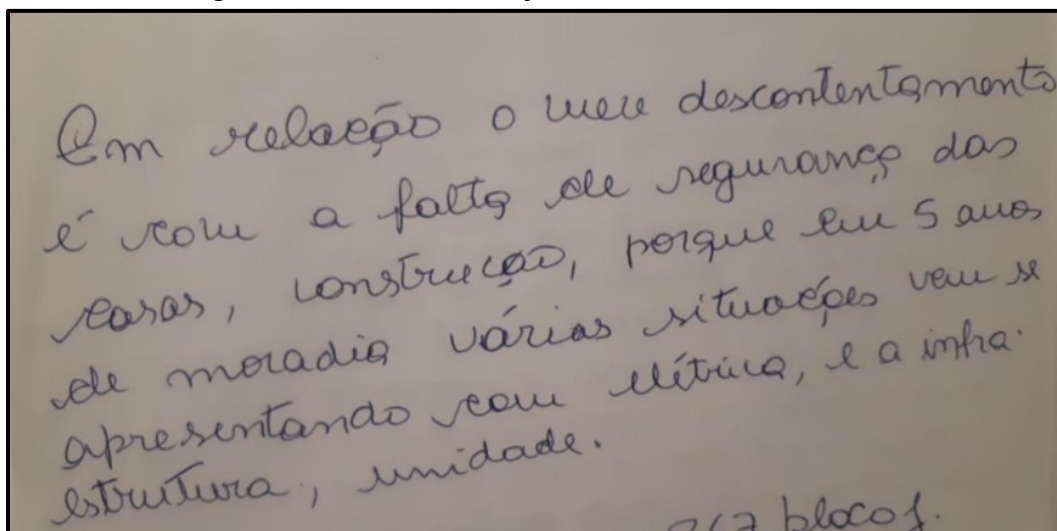 Em relação o meu descontentamento
é com a falta de segurança das
casas, construção, porque em 5 anos
de moradia várias situações vem se
apresentando com elétrica, e a infra.
estrutura, unidade.
bloco 1.